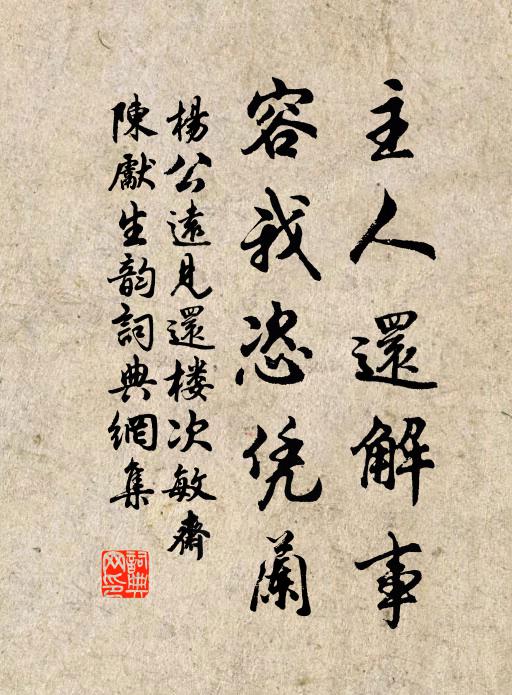 主人還解事
容我恣凭蘭
楊公遠見還楼次敏齋
陳獻生韵詞典網集
詞典网印